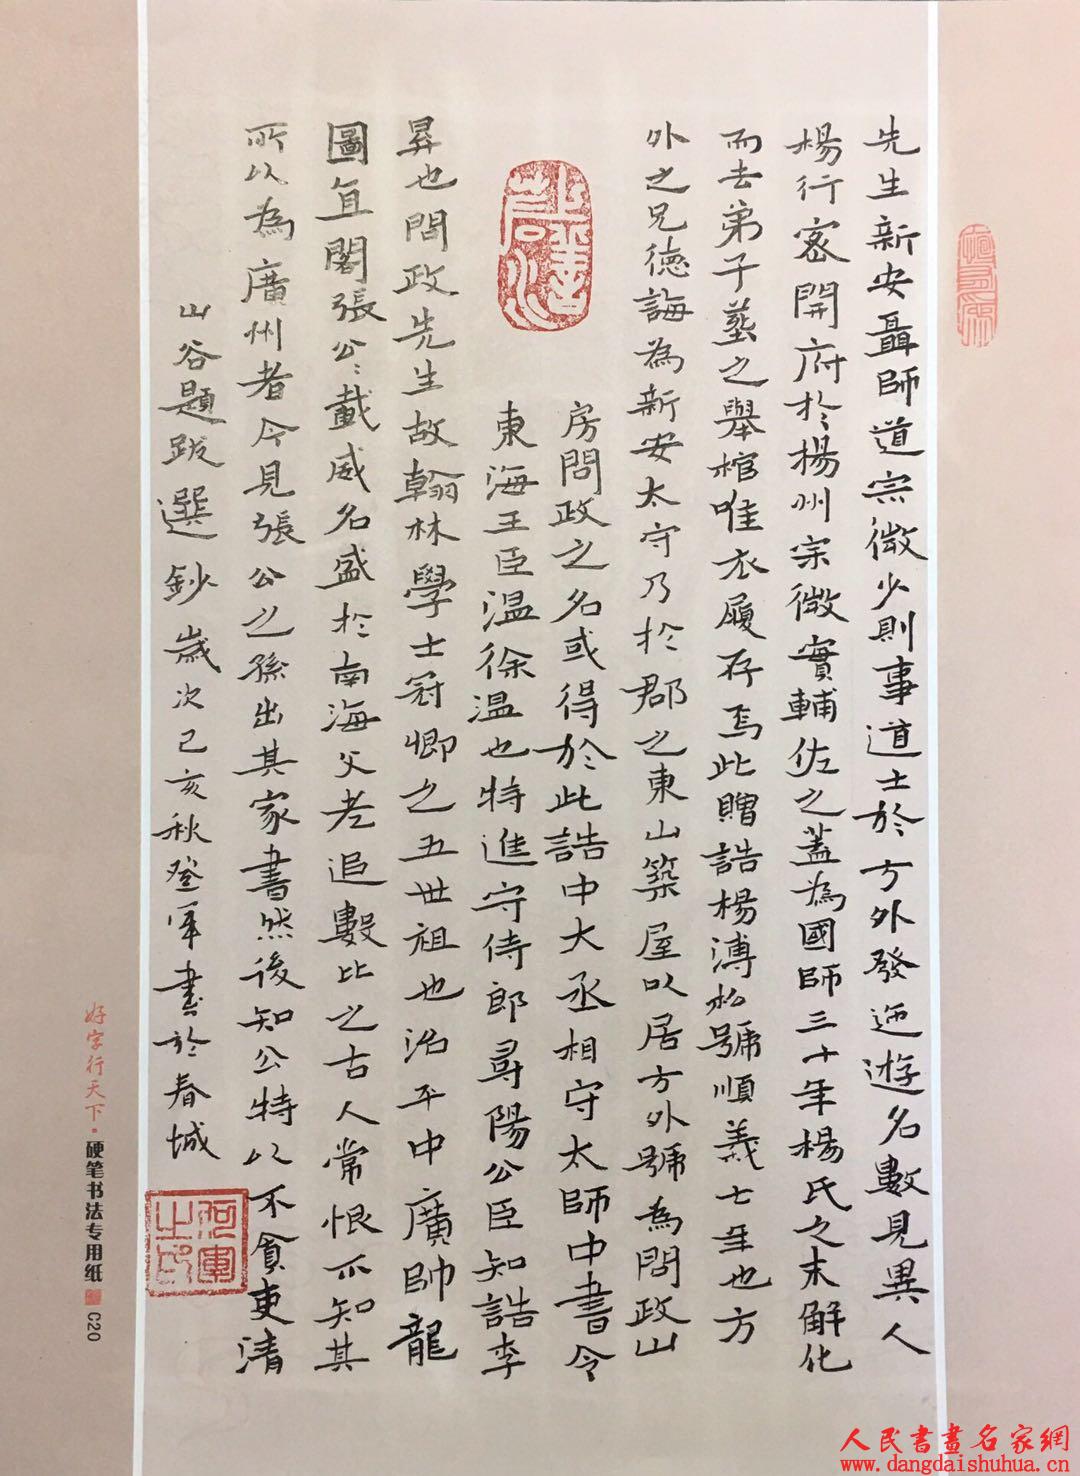 先生新安聶師道宗微少則事道士於方外發迹遊名數見異人
楊行密開府於楊州宗微實輔佐之蓋為國師三十年楊氏之末解化
而去弟子葬之舉棺唯衣履存焉此贈誥楊溥私號順義七年也方
外之兄德誨為新安太守乃於郡之東山築屋以居方外號為問政山
房問政之名或得於此誥中大丞相守太師中書令
東海王臣温徐温也特進守侍郎尋陽公臣知誥李
昪也問政先生故翰林學士冠卿之五世祖也治平中廣帥龍
圖直閣張公公載威名盛於南海父老追數比之古人常恨不知其
所以為廣州者今見張公之孫出其家書然後知公特以不貪吏清
山谷題跋選鈔歲次己亥秋登軍書於春城
好字行天下·硬笔书法专用纸 C20
人民書畫名家網
www.dangdaishuhua.cn